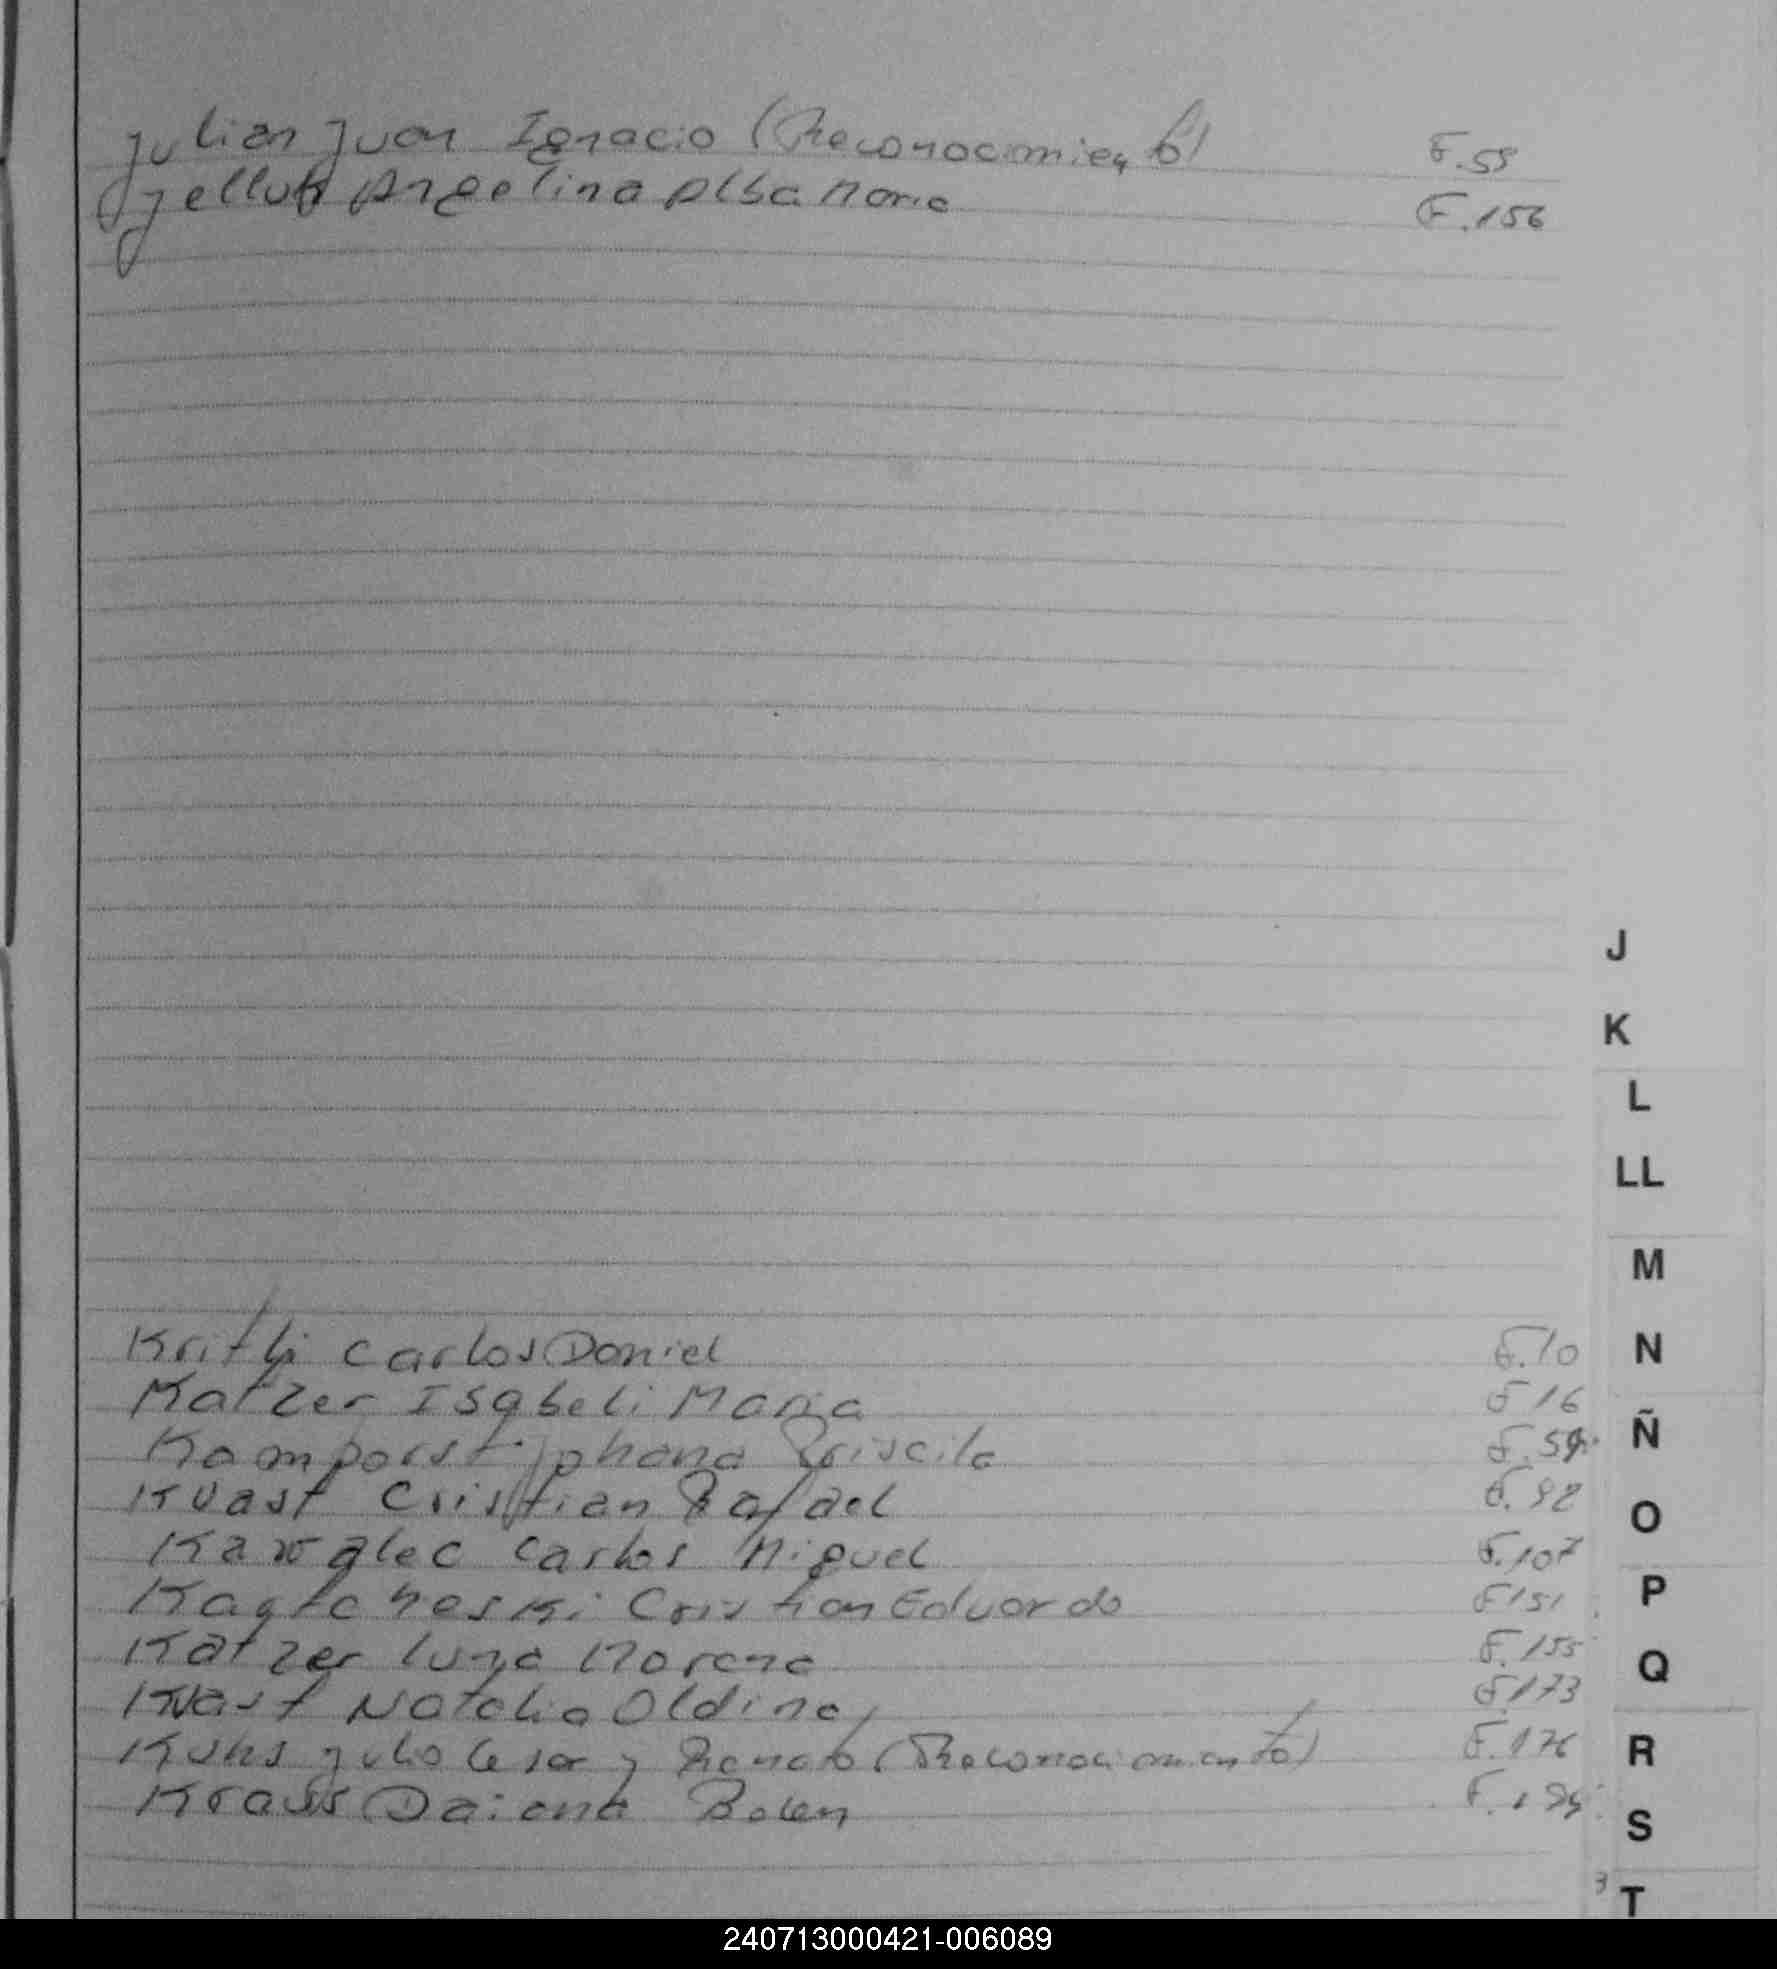 Julian Juan Ignacio (Reconocimiento) F.55
Jelluh Angelina Alba Maria F.156
J
K
L
LL
M
Carlos Daniel F.10 N
Katzer Isabeli Maria F 16
Kamporst Johana Priscila F.59 Ñ
Kuast Cristian Rafael F.92 O
Kawalec Carlos Miguel F.107
Cristian Eduardo F 151 P
Katzer Luna Morena F.155 Q
Kuast Natalia Oldina F 173
Kuhs Julio Cesar y Renato (Reconocimiento) F.176 R
Krauss Daiana Belen S
3 T
240713000421-006089